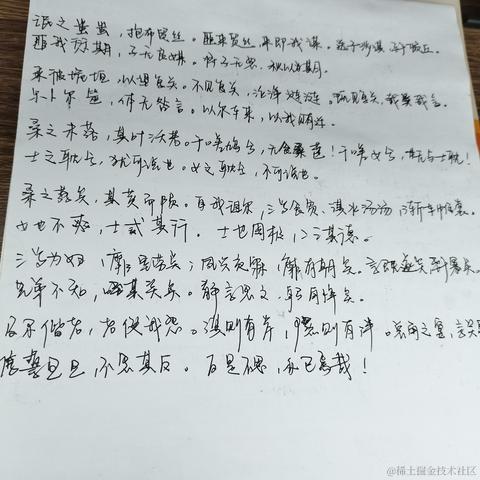 氓之蚩蚩，抱布贸丝。匪来贸丝，来即我谋。送子涉淇，至于顿丘。
匪我愆期，子无良媒。将子无怒，秋以为期。
乘彼垝垣，以望复关。不见复关，泣涕涟涟。既见复关，载笑载言。
尔卜尔筮，体无咎言。以尔车来，以我贿迁。
桑之未落，其叶沃若。于嗟鸠兮，无食桑葚！于嗟女兮，无与士耽！
士之耽兮，犹可说也。女之耽兮，不可说也。
桑之落矣，其黄而陨。自我徂尔，三岁食贫。淇水汤汤，渐车帷裳。
女也不爽，士贰其行。士也罔极，二三其德。
三岁为妇，靡室劳矣；夙兴夜寐，靡有朝矣。言既遂矣，至于暴矣。
兄弟不知，咥其笑矣。静言思之，躬自悼矣。
及尔偕老，老使我怨。淇则有岸，隰则有泮。总角之宴，言笑
信誓旦旦，不思其反。反是不思，亦已焉哉！
@稀土掘金技术社区